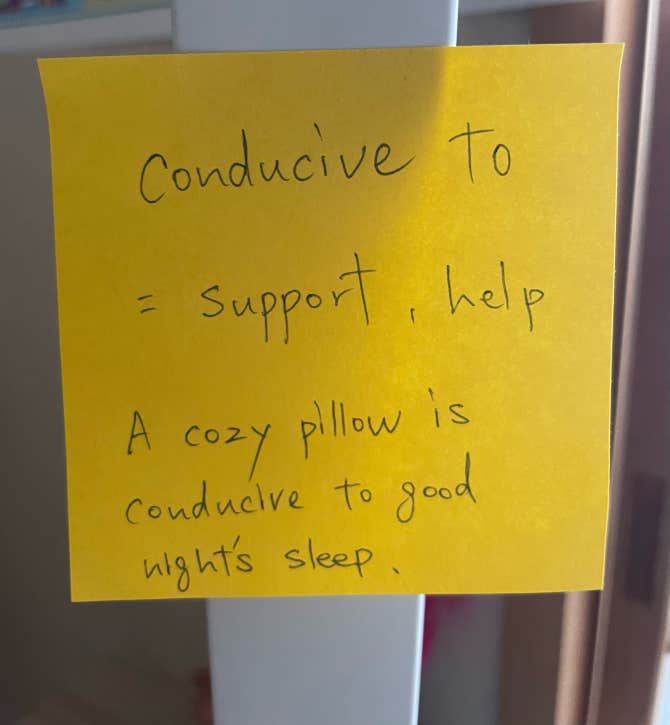 Conducive to
= support, help
A cozy pillow is
conducive to good
night's sleep.